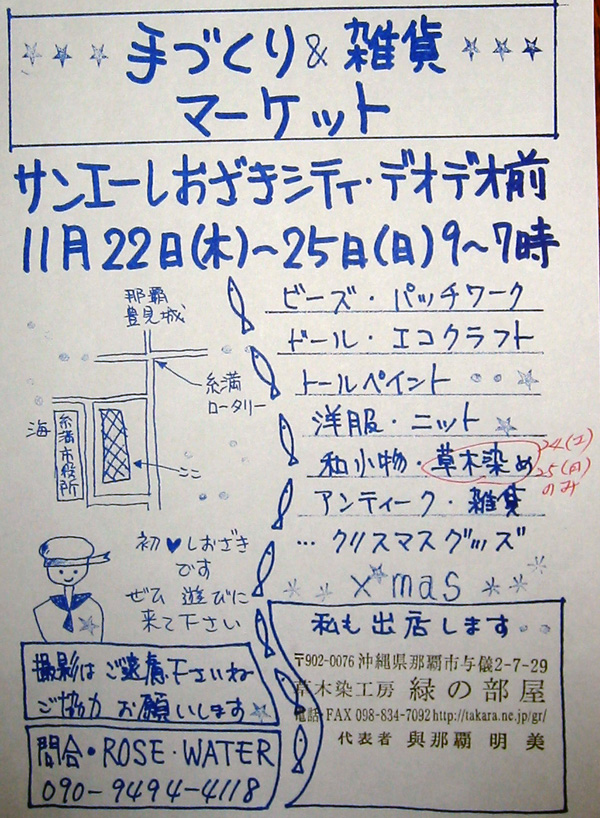 手づくり&雑貨
マーケット
サンエーしおざきシティ・デオデオ前
11月22日(木)~25日(日)9~7時
那覇
豊見城
糸満
ロータリー
海
糸満市役所
ここ
ビーズ・パッチワーク
ドール・エコクラフト
トールペイント
洋服・ニット
和小物・草木染め
24(土)
25(日)
のみ
アンティーク・雑貨
…クリスマスグッズ
x'mas
初♥しおざき
です
ぜひ遊びに
来て下さい
撮影はご遠慮下さいね
ご協力お願いします
問合・ROSE・WATER
090-9494-4118
私も出店します
〒902-0076 沖縄県那覇市与儀2-7-29
草木染工房 緑の部屋
電話・FAX 098-834-7092 http://takara.ne.jp/gr/
代表者 與那覇 明美